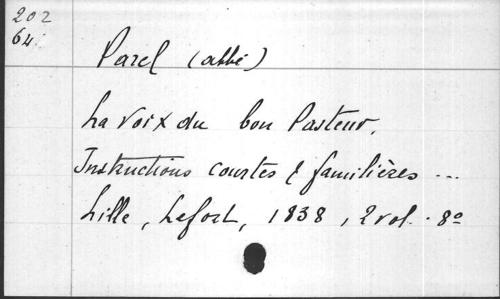 202
64
Parel (abbé)
La Voix du bon Pasteur.
Instructions courtes & familières ...
Lille, Lefort, 1838, 2 vol. 8º